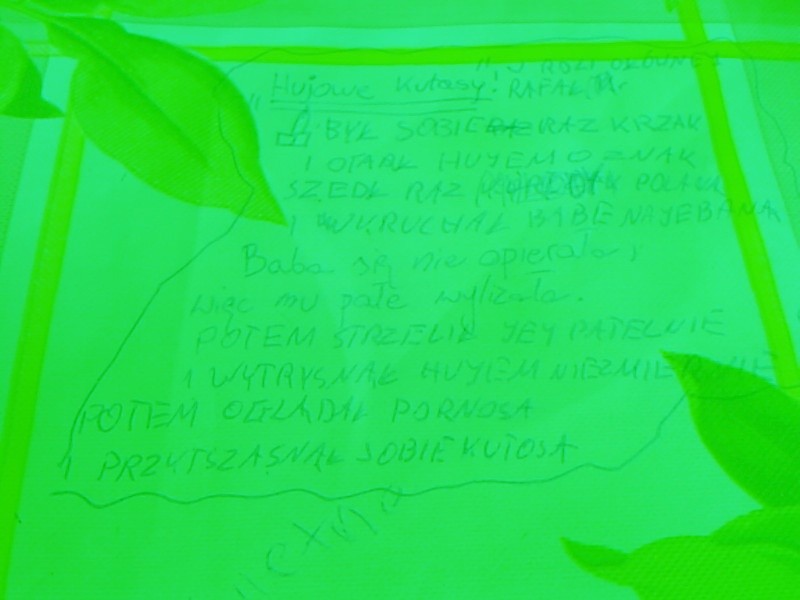 "Hujowe kutasy!" W ROLI GŁÓWNEJ
RAFAŁ R.
BYŁ SOBIE RAZ KRZAK
I OTARŁ HUYEM O ZNAK
SZEDŁ RAZ POLANĄ
I WKRUCHAŁ BABE NAYEBANĄ
Baba się nie opierała,
więc mu pałe wylizała.
POTEM STRZELIŁ JEY PATELNIE
I WYTRYSNĄŁ HUYEM NIEZMIERNIE
POTEM OGLĄDAŁ PORNOSA
I PRZYTSZASNĄŁ SOBIE KUTOSA